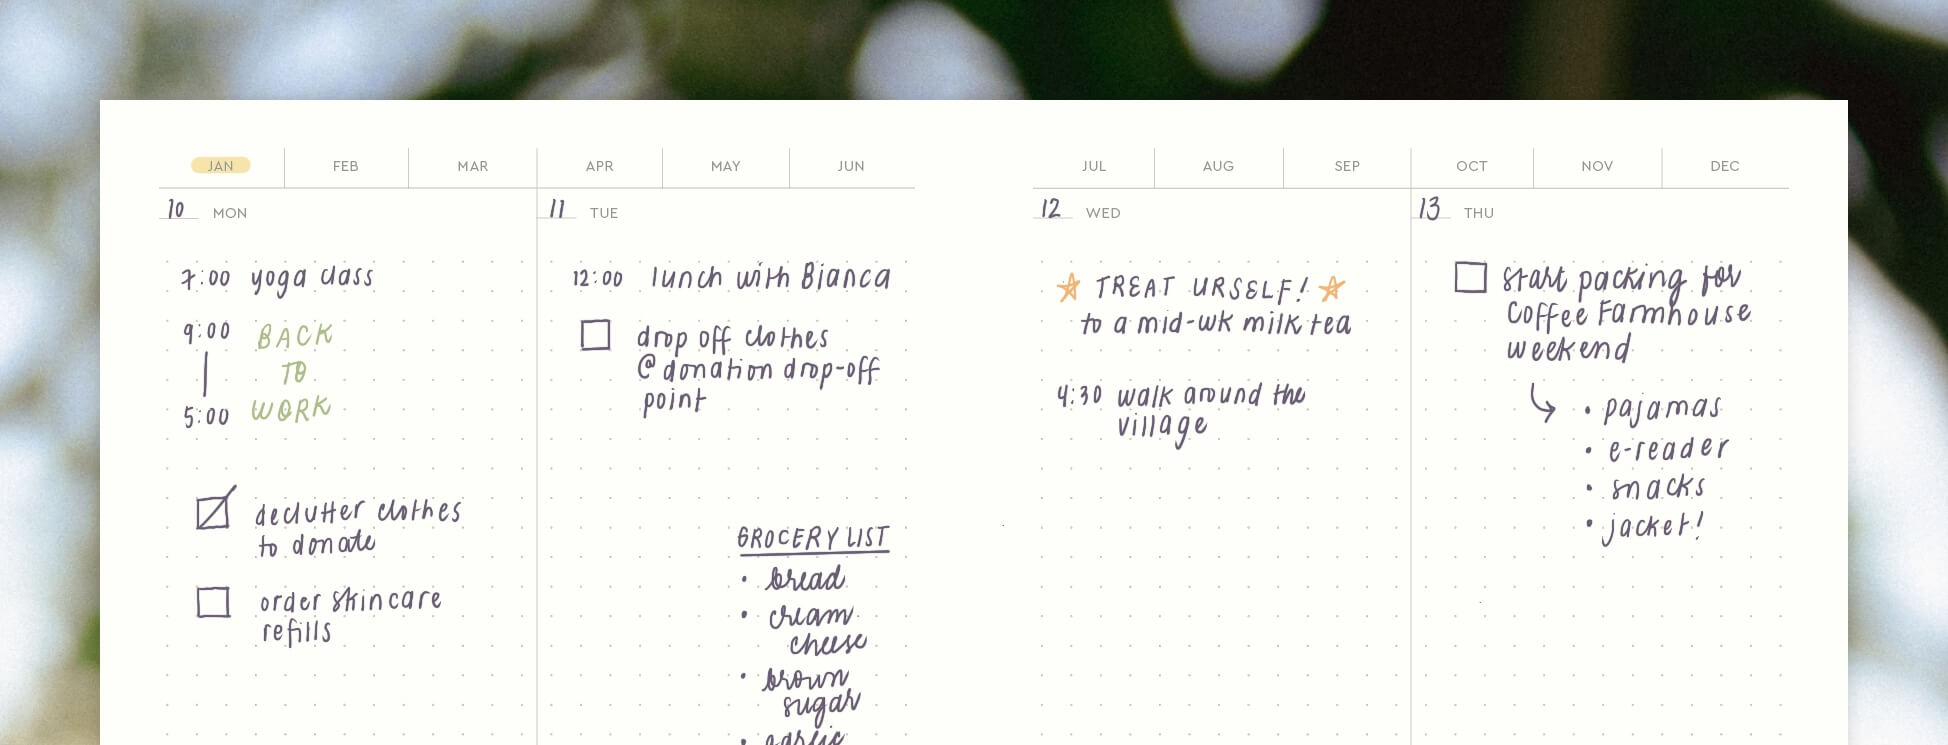 JAN FEB MAR APR MAY JUN JUL AUG SEP OCT NOV DEC
10 MON
7:00 yoga class
9:00 BACK
TO
5:00 WORK
declutter clothes
to donate
order skincare
refills
11 TUE
12:00 lunch with Bianca
drop off clothes
@ donation drop-off
point
GROCERY LIST
• bread
• cream
cheese
• brown
sugar
• garlic
12 WED
TREAT URSELF!
to a mid-wk milk tea
4:30 walk around the
village
13 THU
start packing for
Coffee Farmhouse
weekend
• pajamas
• e-reader
• snacks
• jacket!